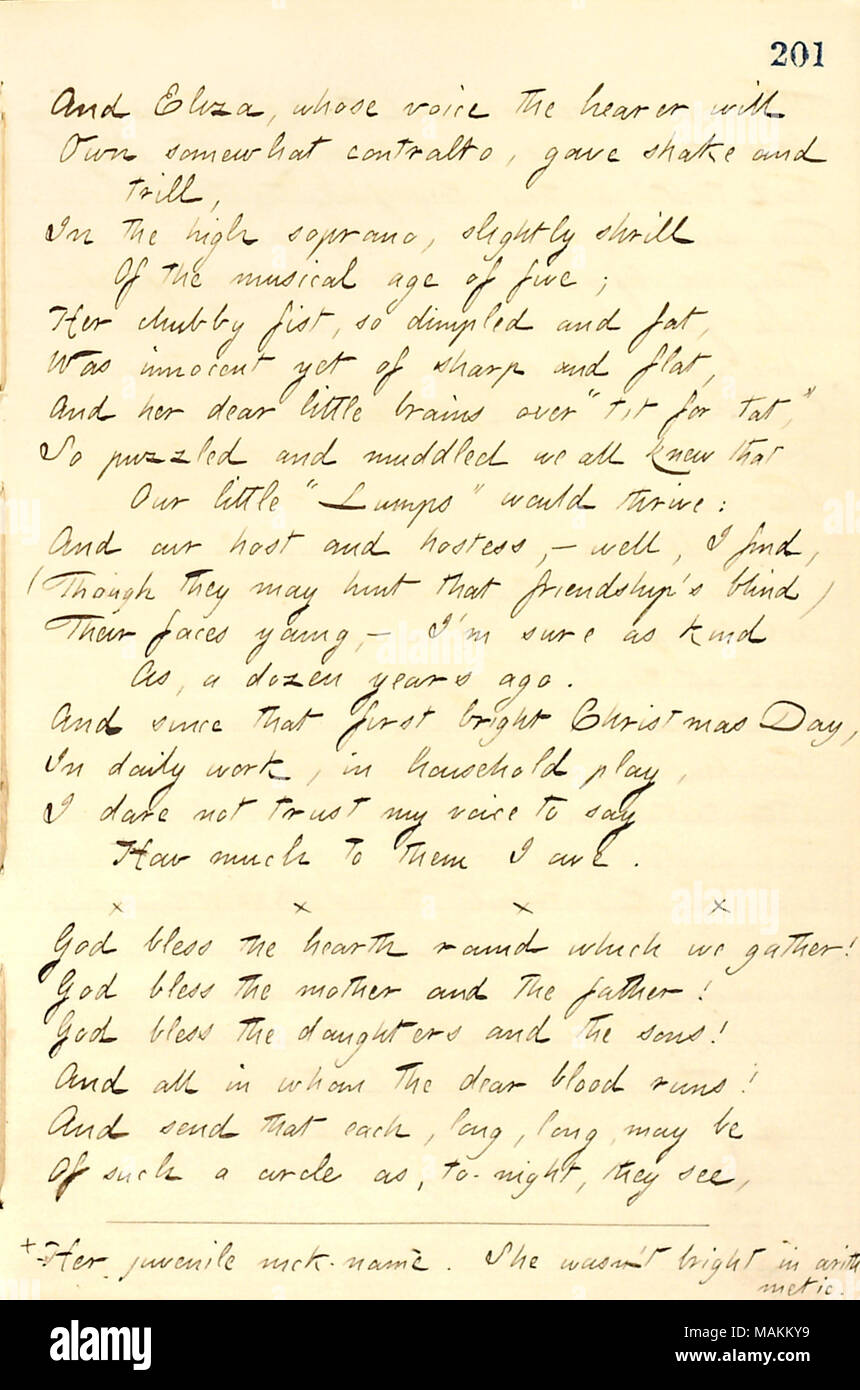 201
And Eliza, whose voice the hearer will
Own somewhat contralto, gave shake and
trill,
In the high soprano, slightly shrill
Of the musical age of five;
Her chubby fist, so dimpled and fat,
Was innocent yet of sharp and flat,
And her dear little brains over "tit for tat,"
So puzzled and muddled we all knew that
Our little "Lumps" would thrive:
And our host and hostess, — well, I find,
(Though they may hint that friendship's blind)
Their faces young, — I'm sure as kind
As, a dozen years ago.
And since that first bright Christmas Day,
In daily work, in household play,
I dare not trust my voice to say
How much to them I owe.
x x x x
God bless the hearth round which we gather!
God bless the mother and the father!
God bless the daughters and the sons!
And all in whom the dear blood runs!
And send that each, long, long, may be
Of such a circle as, to-night, they see,
+ Her juvenile nick-name. She wasn't bright in arith
metic.
alamy
Image ID: MAKKY9
www.alamy.com